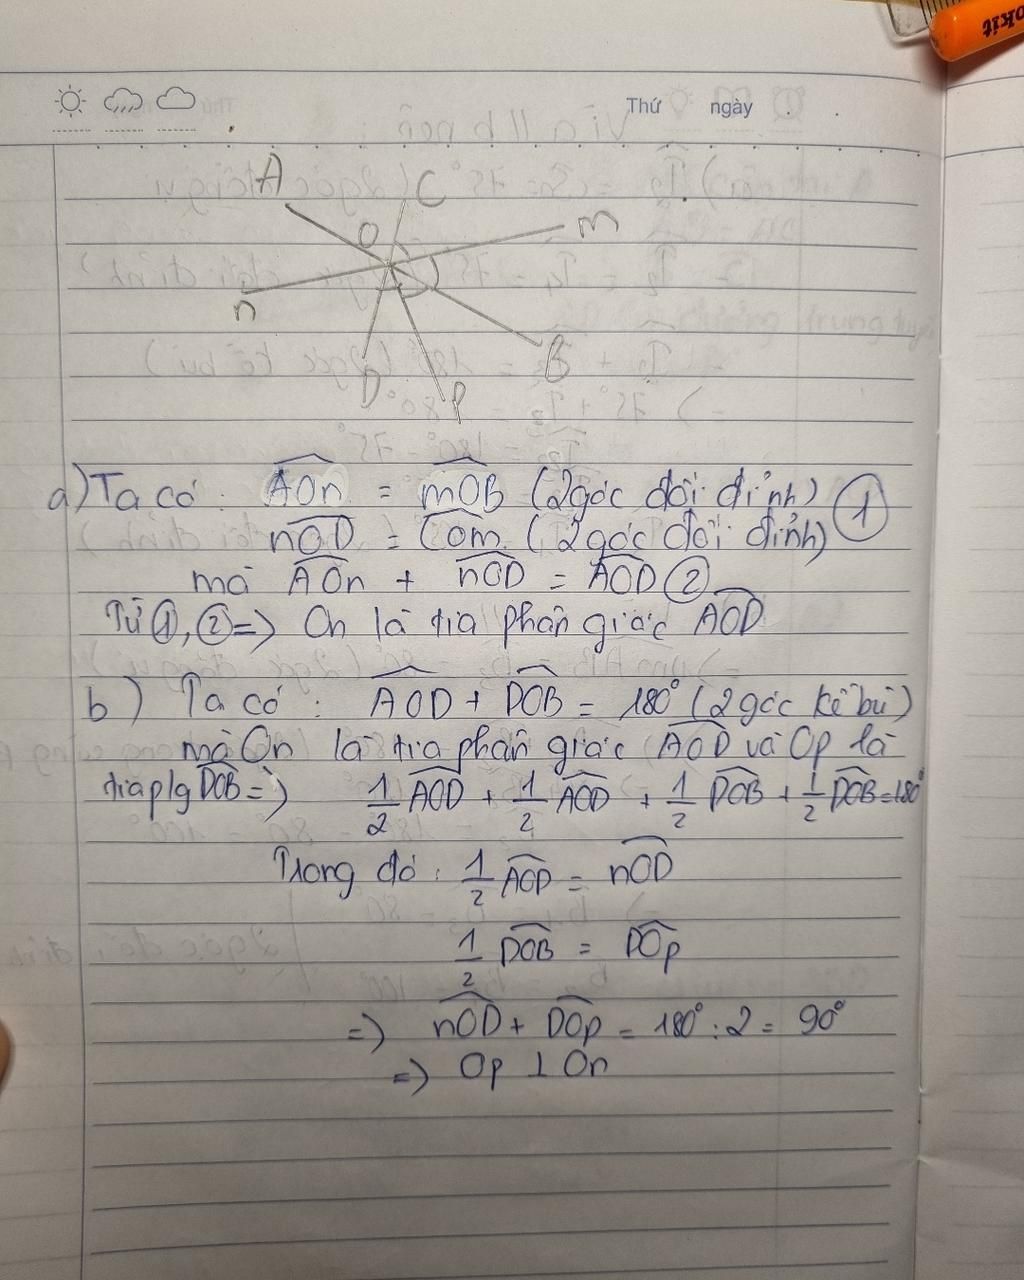 okit
Thứ ngày
A
C
O
m
n
B
D
P
a) Ta có: AOn = mOB (2 góc đối đỉnh) ①
nOD = Com (2 góc đối đỉnh)
mà AOn + nOD = AOD ②
Từ ①, ② => On là tia phân giác AOD
b) Ta có: AOD + DOB = 180° (2 góc kề bù)
mà On là tia phân giác AOD và Op là
tia p/g DOB => 1/2 AOD + 1/2 AOD + 1/2 DOB + 1/2 DOB = 180°
Trong đó: 1/2 AOD = nOD
1/2 DOB = DOp
=> nOD + DOp = 180° : 2 = 90°
=> Op ⊥ On